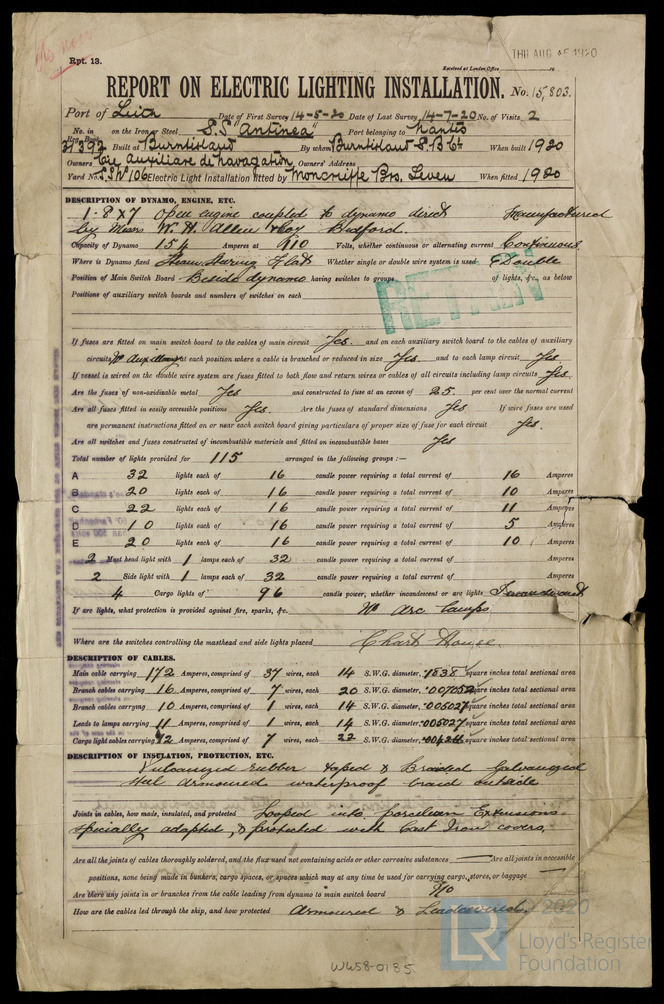 THU AUG 5 1920
Rpt. 13.
Received at London Office
REPORT ON ELECTRIC LIGHTING INSTALLATION. No. 15,803.
Port of Leith Date of First Survey 14-5-20 Date of Last Survey 14-7-20 No. of Visits 2
No. in Reg. Book on the Iron or Steel S.S "Antinea" Port belonging to Nantes
31392 Built at Burntisland By whom Burntisland S.B Co When built 1920
Owners Cie Auxiliare de Navagation Owners' Address
Yard No. S.S. No 106 Electric Light Installation fitted by Moncrieffe Bros. Leven When fitted 1920
DESCRIPTION OF DYNAMO, ENGINE, ETC.
1-8x7 Open engine coupled to dynamo direct Manufactured
by Messrs W. H. Allen & Coy Bedford.
Capacity of Dynamo 154 Amperes at 110 Volts, whether continuous or alternating current Continuous
Where is Dynamo fixed Steam Steering Flat Whether single or double wire system is used Double
Position of Main Switch Board Beside dynamo having switches to groups of lights, &c., as below
Positions of auxiliary switch boards and numbers of switches on each
RETAIN
If fuses are fitted on main switch board to the cables of main circuit Yes and on each auxiliary switch board to the cables of auxiliary
circuits No Auxiliary at each position where a cable is branched or reduced in size Yes and to each lamp circuit Yes
If vessel is wired on the double wire system are fuses fitted to both flow and return wires or cables of all circuits including lamp circuits Yes
Are the fuses of non-oxidizable metal Yes and constructed to fuse at an excess of 25 per cent over the normal current
Are all fuses fitted in easily accessible positions Yes. Are the fuses of standard dimensions Yes If wire fuses are used
are permanent instructions fitted on or near each switch board giving particulars of proper size of fuse for each circuit Yes.
Are all switches and fuses constructed of incombustible materials and fitted on incombustible bases Yes
Total number of lights provided for 115 arranged in the following groups :—
A 32 lights each of 16 candle power requiring a total current of 16 Amperes
B 20 lights each of 16 candle power requiring a total current of 10 Amperes
C 22 lights each of 16 candle power requiring a total current of 11 Amperes
D 10 lights each of 16 candle power requiring a total current of 5 Amperes
E 20 lights each of 16 candle power requiring a total current of 10 Amperes
2 Mast head light with 1 lamps each of 32 candle power requiring a total current of Amperes
2 Side light with 1 lamps each of 32 candle power requiring a total current of Amperes
4 Cargo lights of 96 candle power, whether incandescent or arc lights Incandescent
If arc lights, what protection is provided against fire, sparks, &c. No Arc lamps
Where are the switches controlling the masthead and side lights placed Chart House.
DESCRIPTION OF CABLES.
Main cable carrying 172 Amperes, comprised of 37 wires, each 14 S.W.G. diameter, .1838 square inches total sectional area
Branch cables carrying 16 Amperes, comprised of 7 wires, each 20 S.W.G. diameter, .007052 square inches total sectional area
Branch cables carrying 10 Amperes, comprised of 1 wires, each 14 S.W.G. diameter, .005027 square inches total sectional area
Leads to lamps carrying 11 Amperes, comprised of 1 wires, each 14 S.W.G. diameter, .005027 square inches total sectional area
Cargo light cables carrying 12 Amperes, comprised of 7 wires, each 22 S.W.G. diameter, square inches total sectional area
DESCRIPTION OF INSULATION, PROTECTION, ETC.
Vulcanized rubber taped & Braided Galvanized
steel Armoured waterproof braid outside
Joints in cables, how made, insulated, and protected Looped into porcelain Extensions
specially adapted, & protected with Cast Iron covers.
Are all the joints of cables thoroughly soldered, and the flux used not containing acids or other corrosive substances — Are all joints in accessible
positions, none being made in bunkers, cargo spaces, or spaces which may at any time be used for carrying cargo, stores, or baggage —
Are there any joints in or branches from the cable leading from dynamo to main switch board No
How are the cables led through the ship, and how protected Armoured & Leadcovered.
© 2020
LR
Lloyd's Register
Foundation
W658-0185